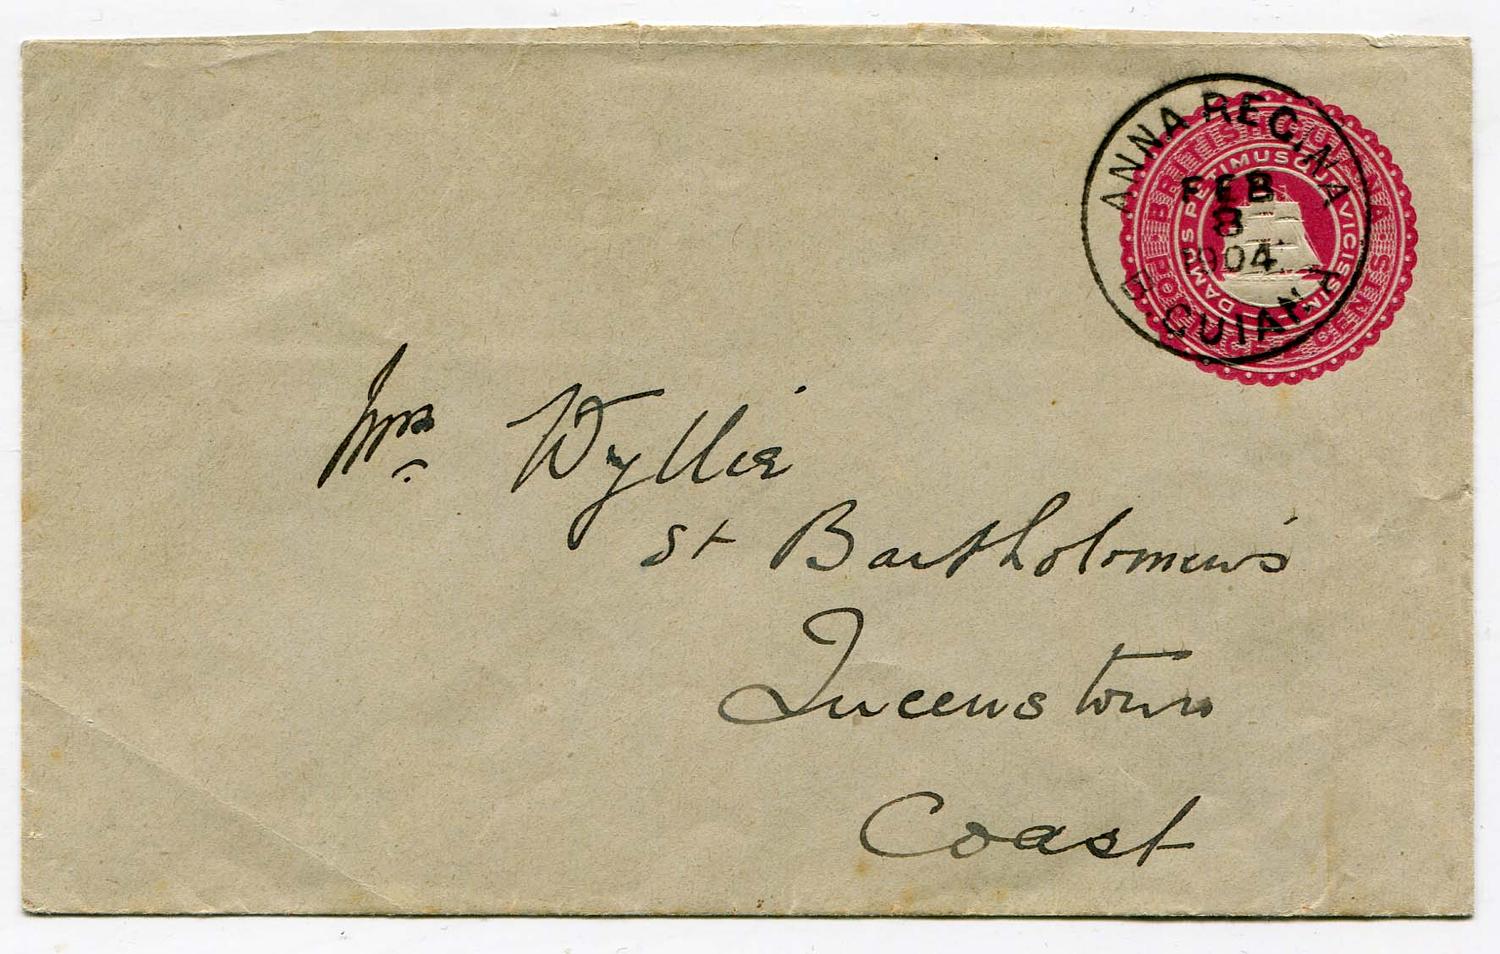 ANNA REGINA
FEB
8
1904
B. GUIANA
BRITISH GUIANA
DAMUS PETIMUSQUE VICISSIM
Mrs Wyllie
St Bartholomew's
Queenstown
Coast